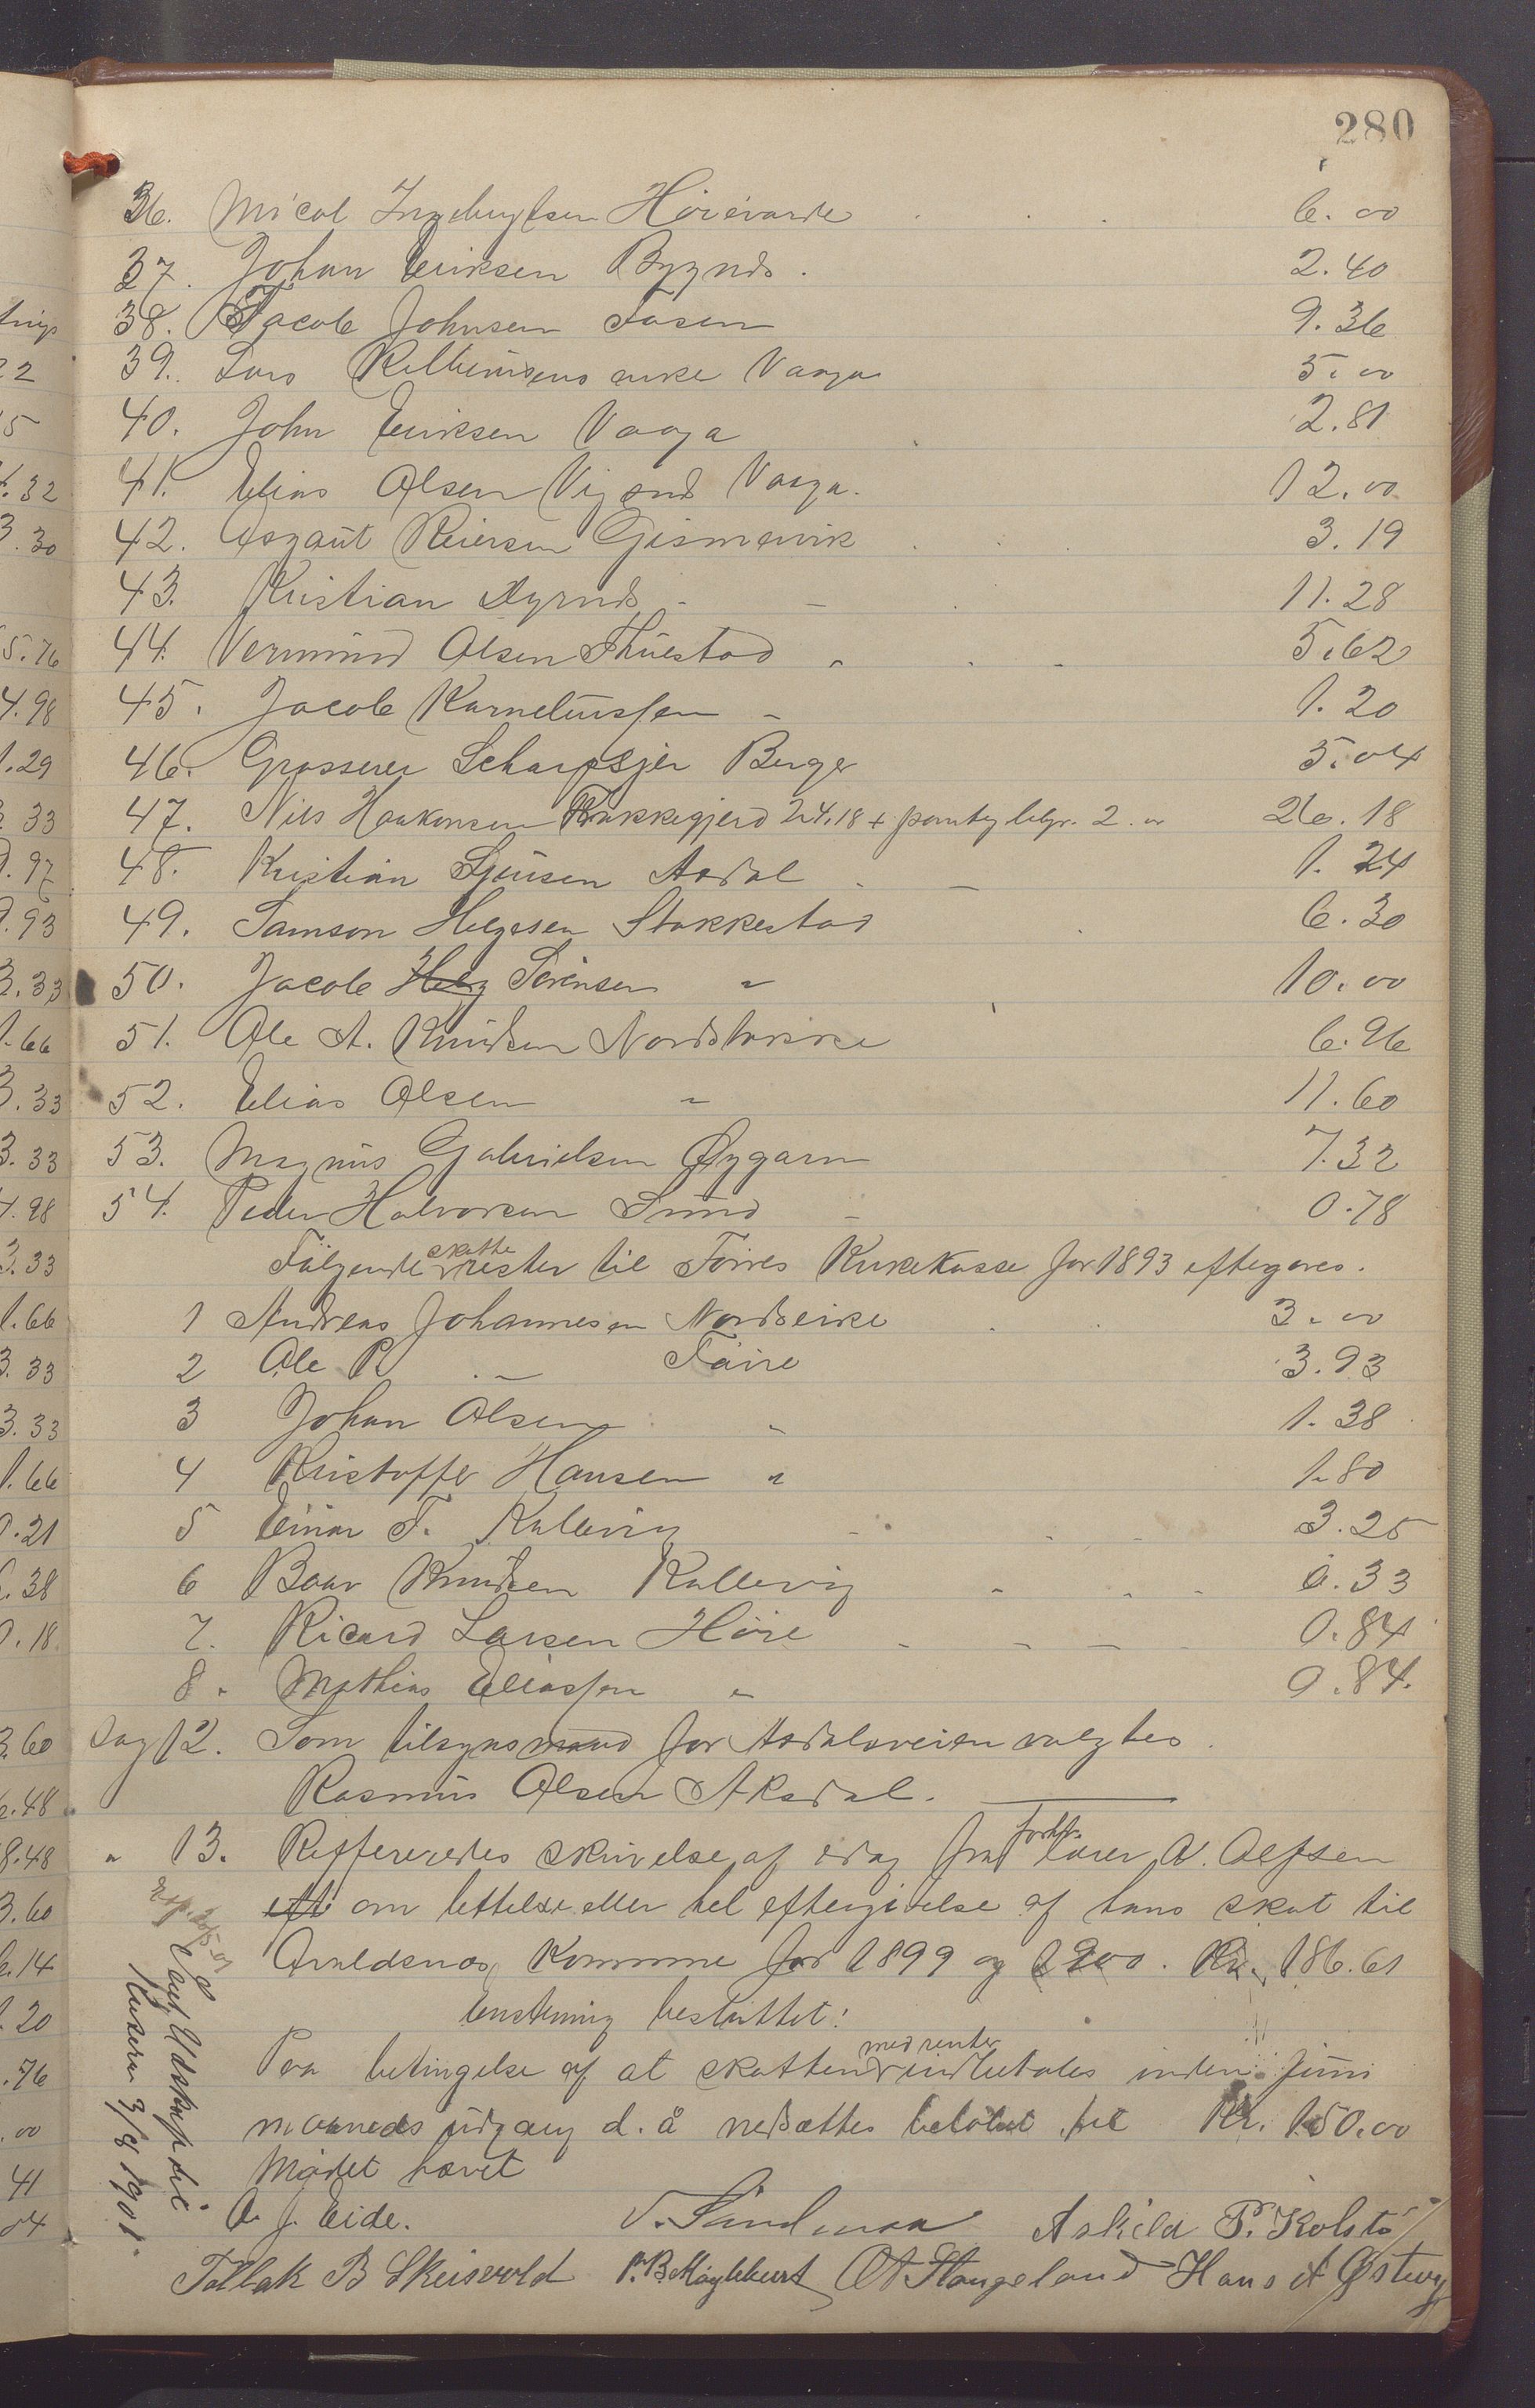 280
36. Micol Ingebrigtsen Høievarde 6.00
37. Johan Eriksen Bygnes. 2.40
38. Jacob Johnsen Fosen 9.36
39. Lars Ketteinsens enke Vaaga 5.00
40. John Eriksen Vaaga 2.81
41. Elias Olsen Vigsnes Vaaga. 12.00
42. Asgaut Reiersen Gismarvik 3.19
43. Kristian Dyrnes - 11.28
44. Vermund Olsen Thuestad 5.62
45. Jacob Karneliussen 1.20
46. Grosserer Scharfsjer Berger 5.04
47. Nils Haakonsen Frakkegjerd 24.18 + 2.00 26.18
48. Kristian Sjursen Aadal 1.24
49. Samson Helgesen Stakkestad 6.30
50. Jacob Helg Sørensen " 10.00
51. Ole A. Knudsen Nordstokke 6.96
52. Elias Olsen " 11.60
53. Magnus Gabrielsen Øygarn 7.32
54. Peder Halvorsen Sund 0.78
Følgende skatterester til Førres Kirkekasse for 1893 eftergaves.
1 Andreas Johannesen Nordseire 3.00
2 Ole P. — Føire 3.93
3 Johan Olsen " 1.38
4 Kristoffer Hansen " 1.80
5 Einar T. Kallevig 3.25
6 Baar Knudsen Kallevig 0.33
7. Ricard Larsen Høie 0.84
8. Mathias Eliassen " 0.84.
Sag 12. Som tilsynsmand for Aadalsveien valgtes
Rasmus Olsen Aksdal.
" 13. Reffereredes skrivelse af idag fra forhv. lærer N. Olfsen
eft om lettelse eller hel eftergivelse af hans skat til
Avaldsnes Kommune for 1899 og 1900. Kr. 186.61
Enstemmig besluttet:
Paa betingelse af at skatten med renter indbetales inden Juni
maaneds udgang d. å nedsættes beløbet til Kr. 150.00
Mødet hævet
O. J. Eide. V. Sundman Askild P. Kolstø
Tollak B Skeisvold P. B. Møglebust O A Stangeland Hans A Østevig
Exp. 20/5-01
Sag Udskrift til
Kaseren 3/8 1901.